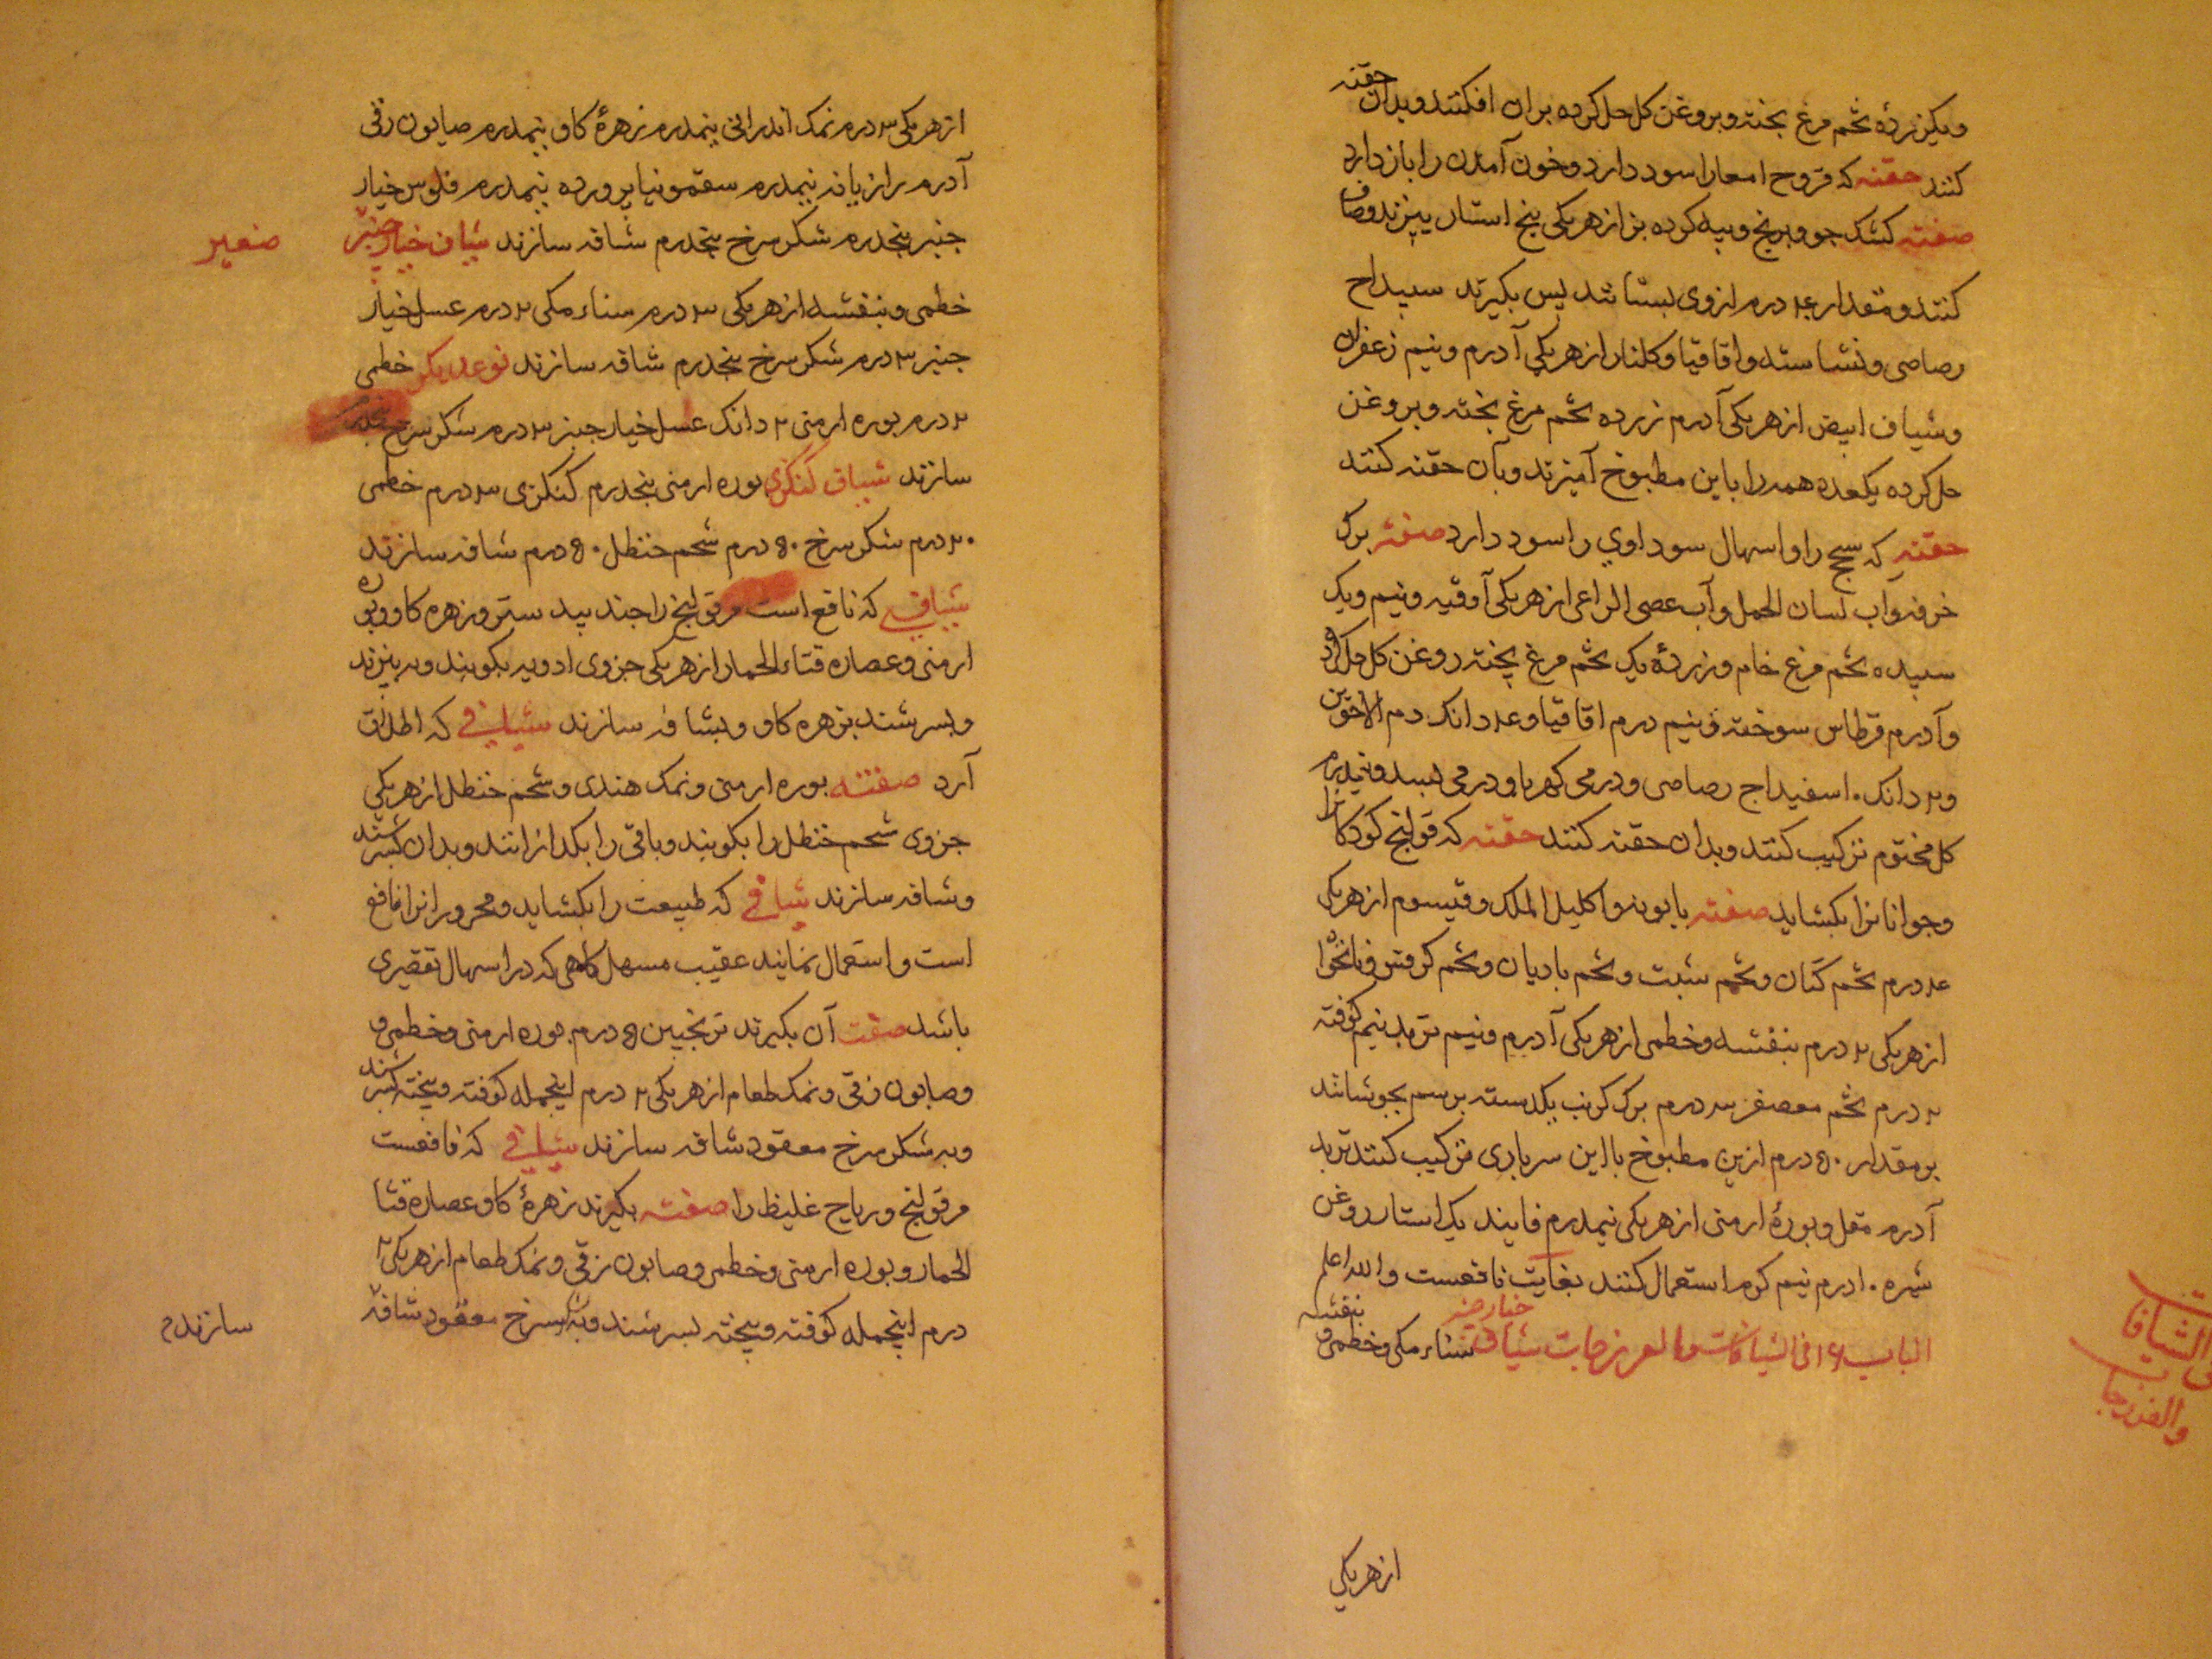 ویکزردهٔ تخم مرغ پخته وبروغن کل حل کرده بران افکنند وبدان حقنه
کنند حقنه که قروح امعا را سود دارد وخون آمدن را باز دارد
صفته کشک جو وبرنج وپیه کرده بز از هریکی پنج استار بپزند وصاف
کنند ومقدار ۴۰ درم از وی بستانند پس بکیرند سپیداج
رصاصی ونشاسته واقاقیا وکلنار از هریکی آدرم ونیم زعفران
وشیاف ابیض از هریکی آدرم زرده تخم مرغ پخته وبروغن
حل کرده یکعدد همه را باین مطبوخ آمیزند وبآن حقنه کنند
حقنه که سحج را واسهال سوداوی را سود دارد صفته برک
خرفه وآب لسان الحمل وآب عصی الراعی از هریکی آوقیه ونیم ویک
سپیده تخم مرغ خام وزردهٔ یک تخم مرغ پخته روغن کل حل کرده
وآدرم قرطاس سوخته ونیم درم اقاقیا و۴ دانک دم الاخوین
و۲ دانک اسفیداج رصاصی ودرمی کهربا ودرمی بسد ونیمدرم
کل مختوم ترکیب کنند وبدان حقنه کنند حقنه که قولنج کودکانرا
وجوانانرا بکشاید صفته بابونه واکلیل الملک وقیسوم از هریکی
۴ درم تخم کتان وتخم شبت وتخم بادیان وتخم کرفس ونانخواه
از هریکی ۲ درم بنفشه وخطمی از هریکی آدرم ونیم تربد نیم کوفته
۲ درم تخم معصفر ۳ درم برک کرنب یکدسته برسم بجوشانند
بر مقدار ۵۰ درم ازین مطبوخ با این سرباری ترکیب کنند تربد
آدرم مقل وبورهٔ ارمنی از هریکی نیمدرم فانید یک استار روغن
شیره ۱۰ درم نیم کرم استعمال کنند بغایت نافعست والله اعلم
الباب ۱۶ فی الشیافات والفرزجات شیاف خیارچنبر سناء مکی وخطمی وبنفشه
از هریکی
از هریکی ۳ درم نمک اندرانی نیمدرم زهرهٔ کاو نیمدرم صابون رقی
آدرم رازیانه نیمدرم سقمونیا پرورده نیمدرم فلوس خیار
چنبر پنجدرم شکر سرخ پنجدرم شافه سازند شیاف خیارچنبر صغیر
خطمی وبنفشه از هریکی ۳ درم سناء مکی ۲ درم عسل خیار
چنبر ۳ درم شکر سرخ پنجدرم شافه سازند نوعدیکر خطمی
۲ درم بوره ارمنی ۲ دانک عسل خیار چنبر ۳ درم شکر سرخ پنجدرم
سازند شیاف کنکرزی بوره ارمنی پنجدرم کنکرزی ۳ درم خطمی
۲۰ درم شکر سرخ ۵۰ درم شحم حنظل ۵۰ درم شافه سازند
شیافی که نافع است مر قولنج را جند بید ستر وزهره کاو وبوره
ارمنی وعصاره قثاء الحمار از هریکی جزوی ادویه بکوبند وبه بیزند
وبسرشند بزهره کاو وبشافه سازند شیافی که اطلاق
آرد صفته بوره ارمنی ونمک هندی وشحم حنظل از هریکی
جزوی شحم حنظل را بکوبند وباقی را بکدازانند وبدان بسرشند
وشافه سازند شیافی که طبیعت را بکشاید ومحرورانرا نافع
است واستعمال نمایند عقیب مسهل کاهی که در اسهال تقصیری
باشد صفت آن بکیرند ترنجبین ۵ درم بوره ارمنی وخطمی و
وصابون رقی ونمک طعام از هریکی ۲ درم اینجمله کوفته وبیخته بسرشند
وبه شکر سرخ معقود شافه سازند شیافی که نافعست
مر قولنج وریاح غلیظ را صفته بکیرند زهرهٔ کاو عصاره قثا
الحمار وبوره ارمنی وخطمی وصابون رقی ونمک طعام از هریکی ۲
درم اینجمله کوفته وبیخته بسرشند وبشکر سرخ معقود شافه سازند
الشیافا
والفرزجات